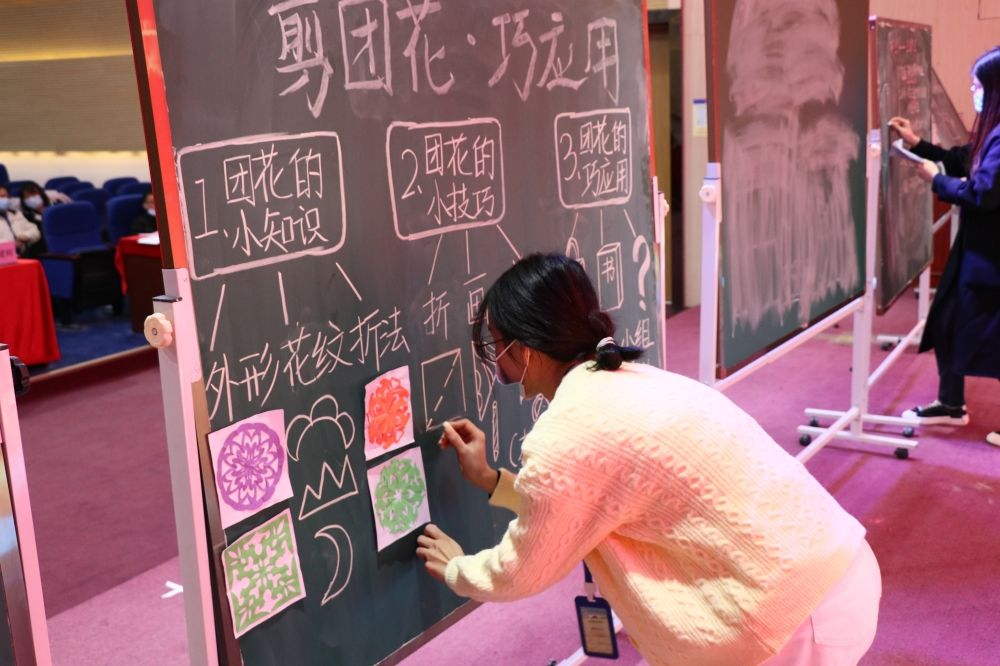 剪团花·巧应用
1、团花的
小知识
2、团花的
小技巧
3、团花的
巧应用
外形 花纹 折法
折 画
书
?
小组